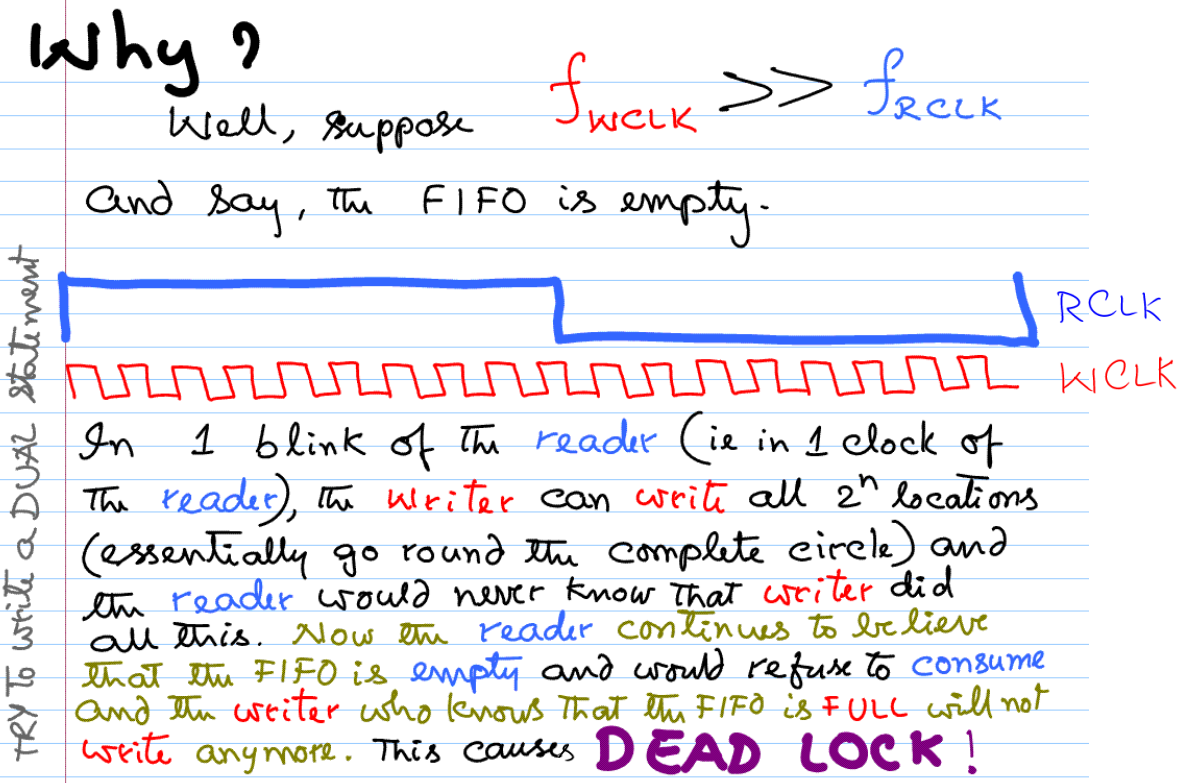 Why?
Well, suppose fWCLK >> fRCLK
and say, the FIFO is empty.
RCLK
WCLK
In 1 blink of the reader (ie in 1 clock of
the reader), the writer can write all 2ⁿ locations
(essentially go round the complete circle) and
the reader would never know that writer did
all this. Now the reader continues to believe
that the FIFO is empty and would refuse to consume
and the writer who knows that the FIFO is FULL will not
write anymore. This causes DEAD LOCK!
TRY TO write a DUAL statement